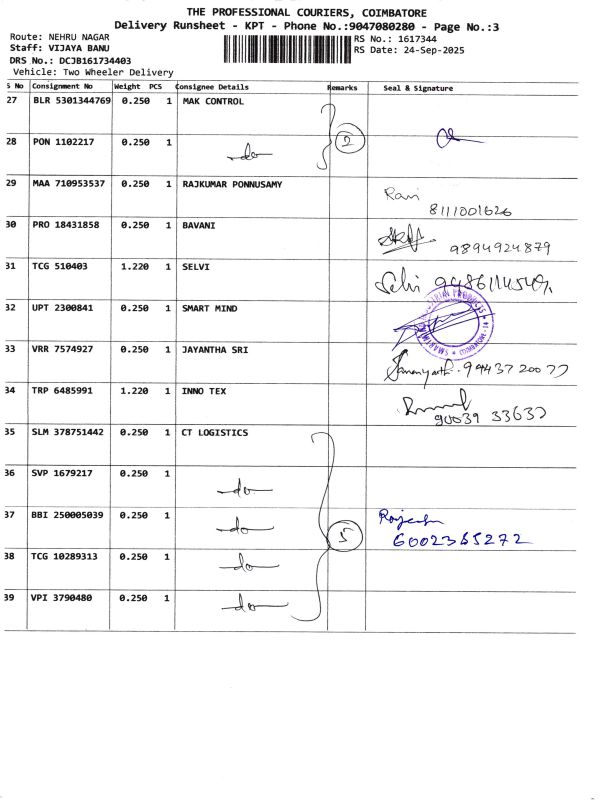 THE PROFESSIONAL COURIERS, COIMBATORE
Delivery Runsheet - KPT - Phone No.:9047080280 - Page No.:3
Route: NEHRU NAGAR RS No.: 1617344
Staff: VIJAYA BANU RS Date: 24-Sep-2025
DRS No.: DCJB161734403
Vehicle: Two Wheeler Delivery
S No Consignment No Weight PCS Consignee Details Remarks Seal & Signature
27 BLR 5301344769 0.250 1 MAK CONTROL
2
28 PON 1102217 0.250 1
do
29 MAA 710953537 0.250 1 RAJKUMAR PONNUSAMY
Ravi
8111001626
30 PRO 18431858 0.250 1 BAVANI
9894924879
31 TCG 510403 1.220 1 SELVI
Selvi
32 UPT 2300841 0.250 1 SMART MIND
33 VRR 7574927 0.250 1 JAYANTHA SRI
34 TRP 6485991 1.220 1 INNO TEX
90039 33637
35 SLM 378751442 0.250 1 CT LOGISTICS
36 SVP 1679217 0.250 1
do
37 BBI 250005039 0.250 1 Rajesh
do 5 6002365272
38 TCG 10289313 0.250 1
do
39 VPI 3790480 0.250 1
do